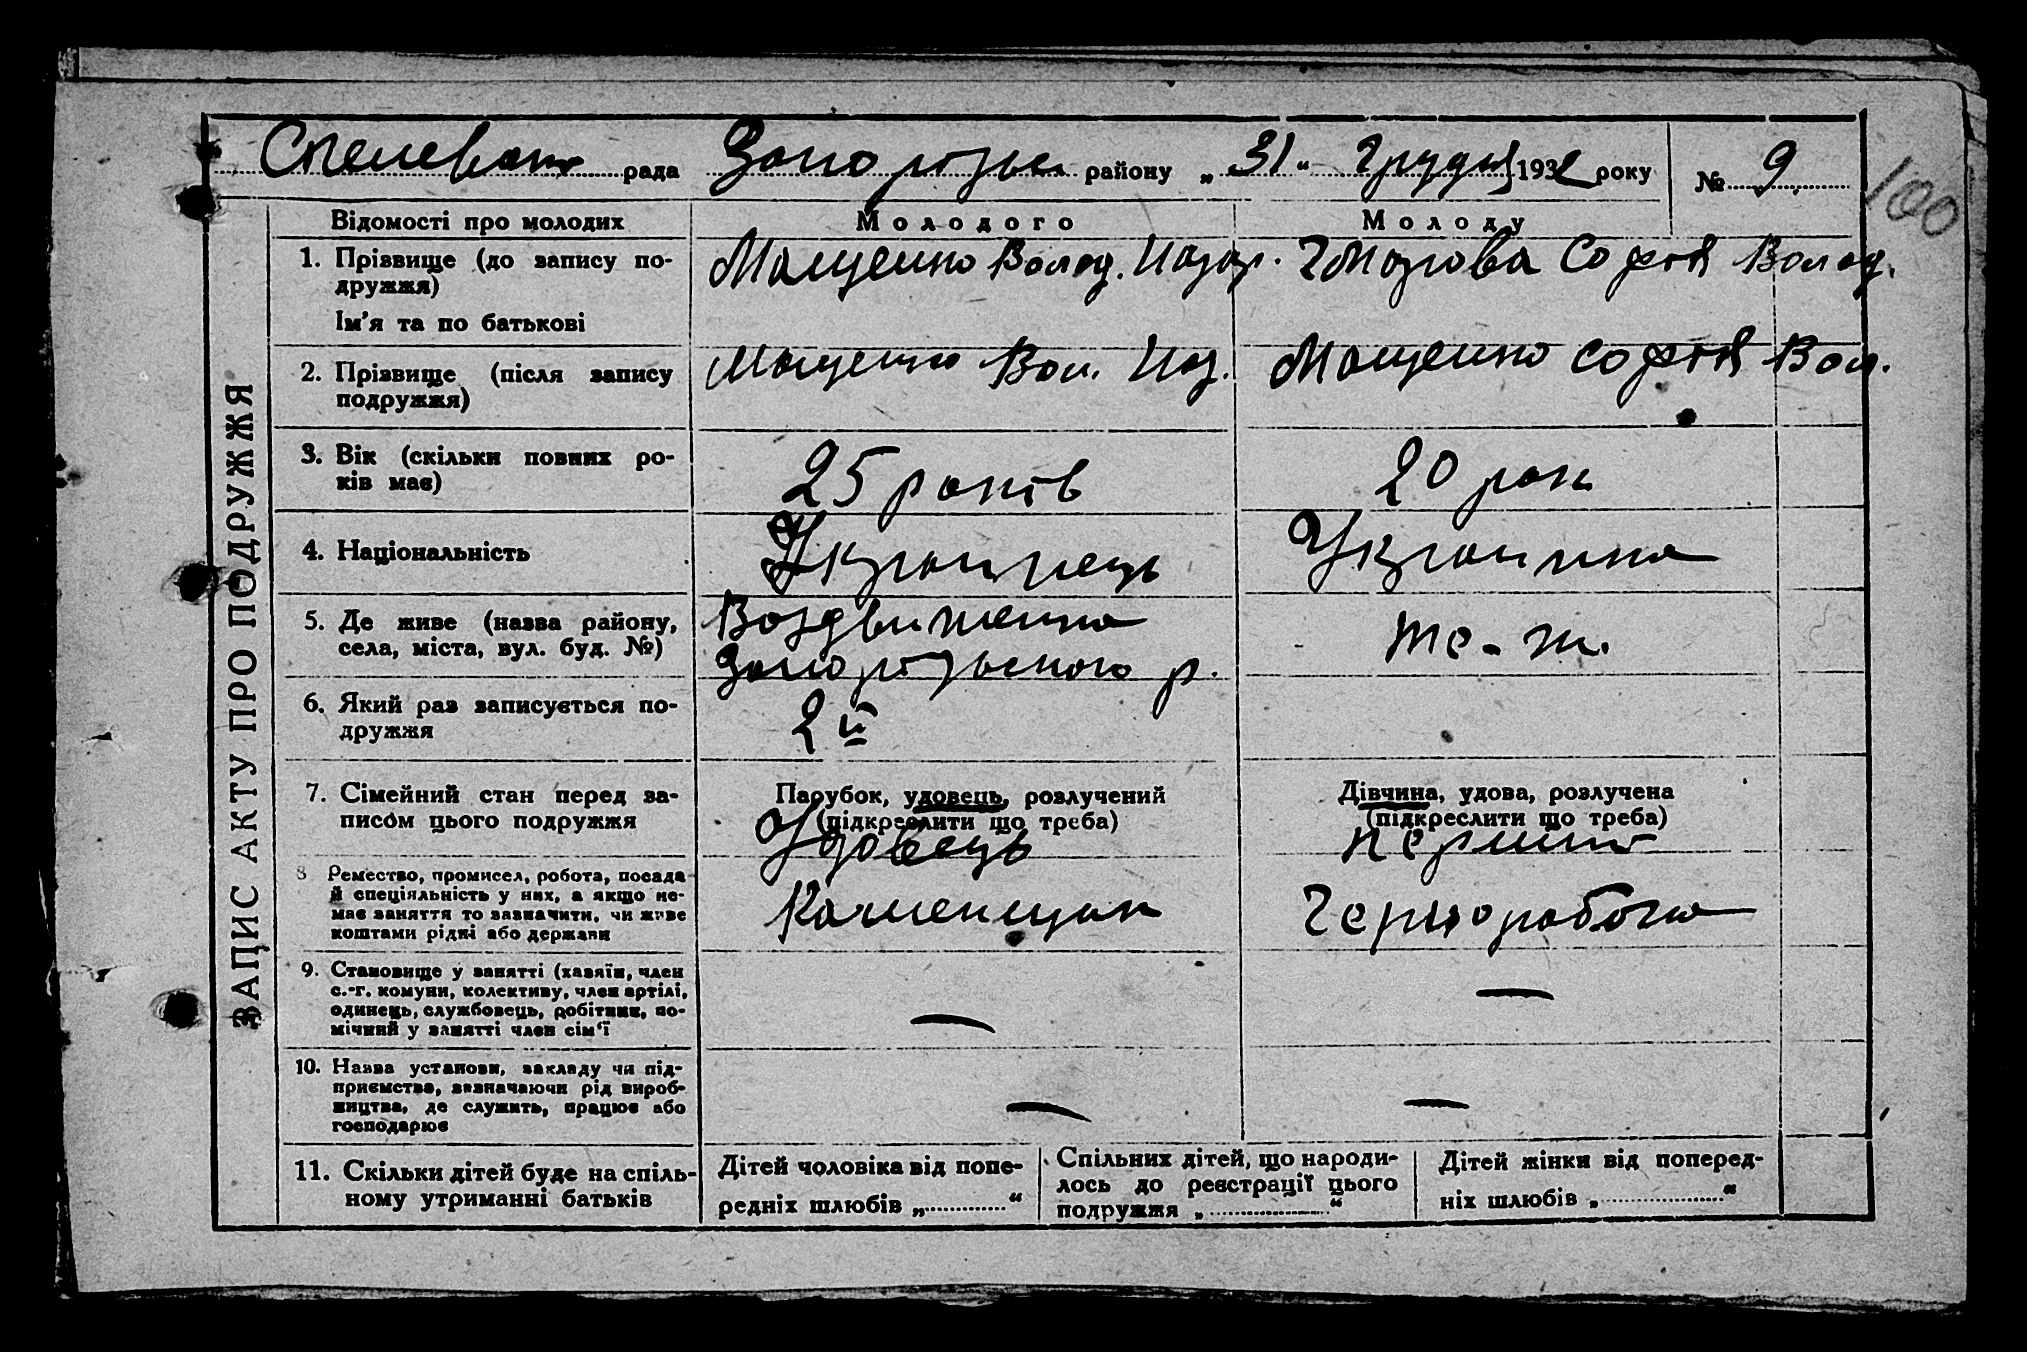 рада Запоріжськ району „ 31 “ Грудня 1932 року № 9
100
ЗАПИС АКТУ ПРО ПОДРУЖЖЯ
Відомості про молодих Молодого Молоду
1. Прізвище (до запису по-
дружжя)
Ім'я та по батькові
Мащенко Волод. Назар. Софія Волод.
2. Прізвище (після запису
подружжя)
Мащенко Вол. Наз. Мащенко Софія Вол.
3. Вік (скільки повних ро-
ків має)
25 років 20 рок
4. Національність
Украинець Украинка
5. Де живе (назва району,
села, міста, вул. буд. №)
Воздвиженка
Запоріжського р.
те-ж.
6. Який раз записується по-
дружжя
2й
7. Сімейний стан перед за-
писом цього подружжя
Парубок, удовець, розлучений
(підкреслити що треба)
Удовець
Дівчина, удова, розлучена
(підкреслити що треба)
8 Ремество, промисел, робота, посада
й спеціяльність у них, а якщо не-
має заняття то зазначити, чи живе
коштами рідні або держави
Каменщик Черноробота
9. Становище у занятті (хазяїн, член
с.-г. комуни, колективу, член артілі,
одинець, службовець, робітник, по-
мічний у занятті член сім'ї
— —
10. Назва установи, закладу чи під-
приємства, зазначаючи рід вироб-
ництва, де служить, працює або
господарює
— —
11. Скільки дітей буде на спіль-
ному утриманні батьків
Дітей чоловіка від попе-
редніх шлюбів „............“
Спільних дітей, що народи-
лось до реєстрації цього
подружжя „............“
Дітей жінки від поперед-
ніх шлюбів „............“